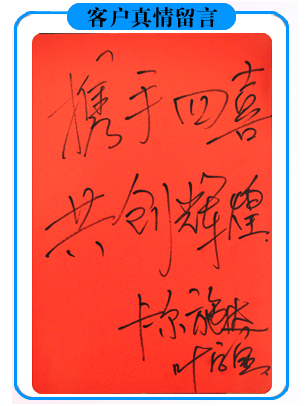 客户真情留言
携手四喜
共创辉煌
卡尔施
叶